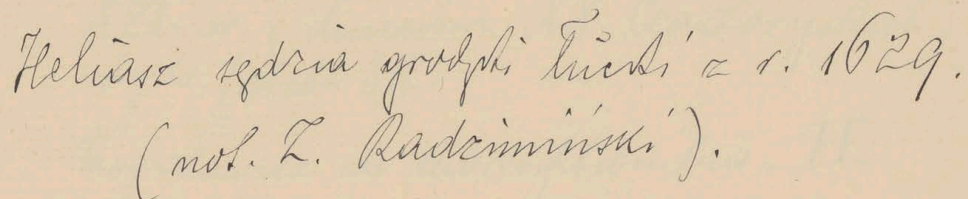 Heliasz sędzia grodzki Łucki z r. 1629.
(not. Z. Radzimiński).